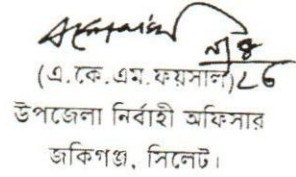 (এ.কে.এম.ফয়সাল)
উপজেলা নির্বাহী অফিসার
জকিগঞ্জ, সিলেট।